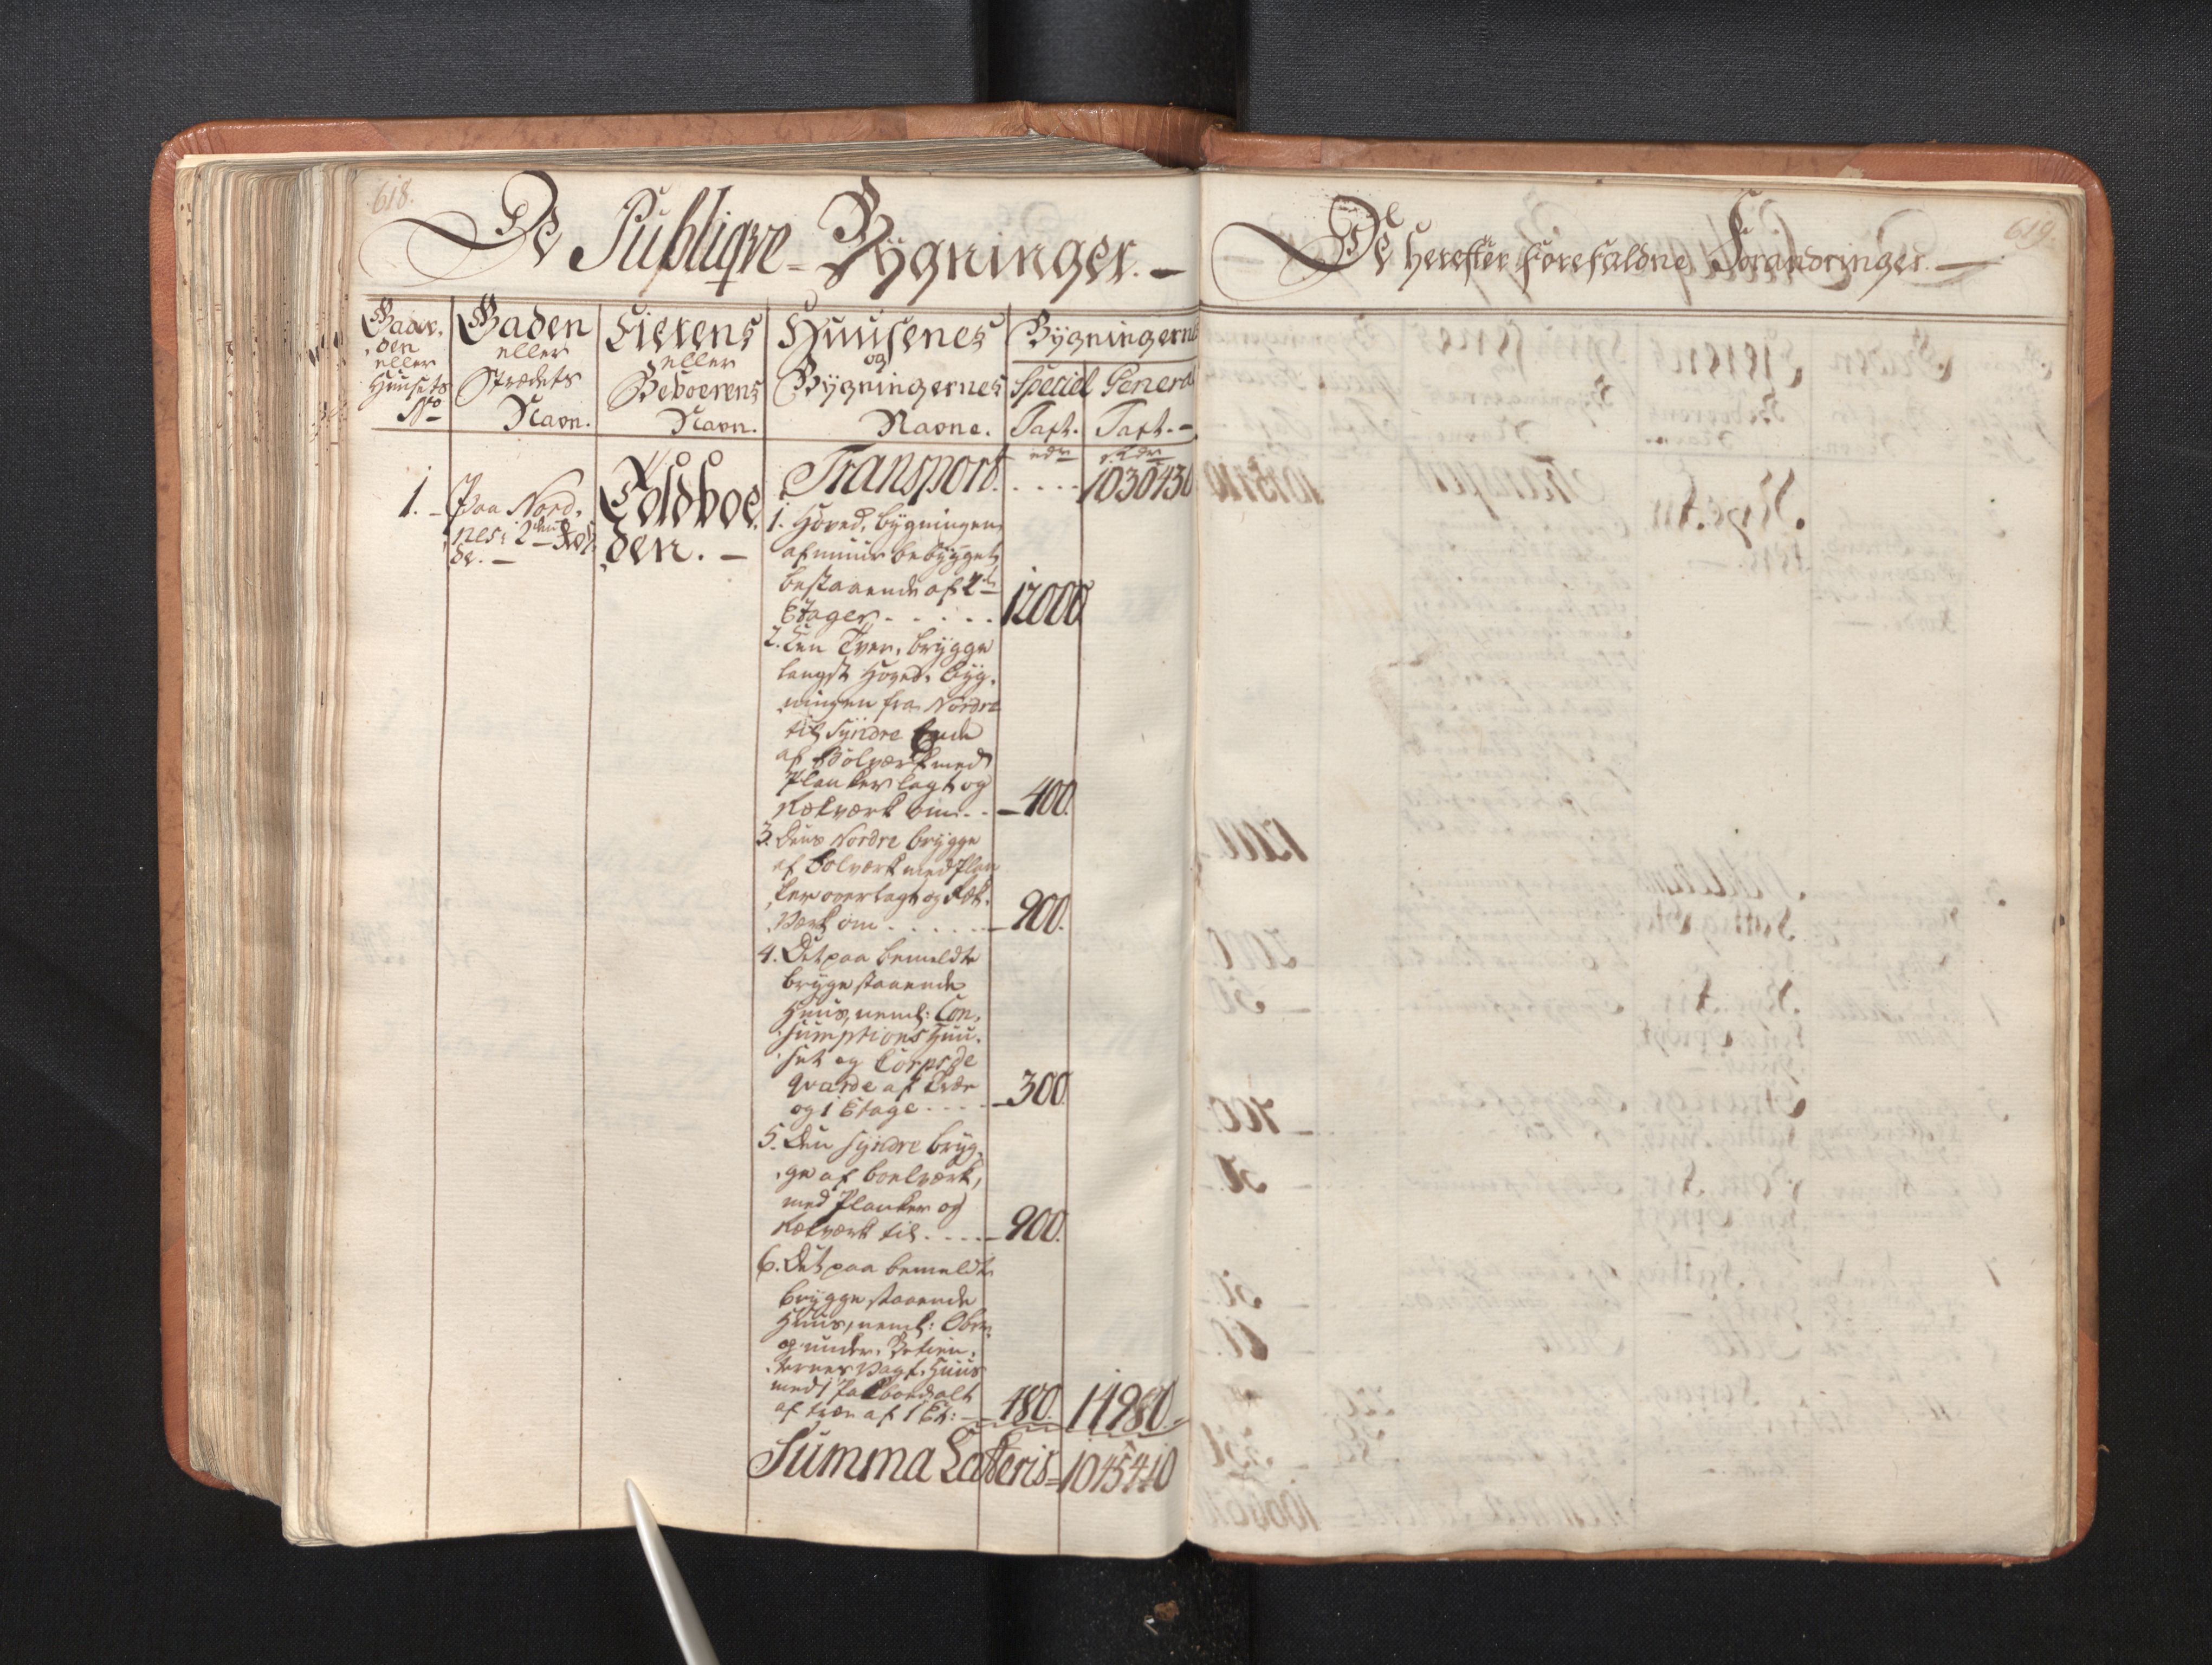 618.
De Publiqve-Bygninger.-
Gaar,
den
eller
Huusets
No
Gaden
eller
Strædets
Navn.
Eierens
eller
Beboerens
Navn.
Huusenes
og
Bygningernes
Navne.
Bygningerne
Speciel
Taxt.
General
Taxt.-
rdr
rdr
Transport. . . . . 1030430
1.-
Paa Nord,
nes: 2den Rod,
de.-
Toldboe,
den.-
1. Hoved, bygningen
af muur bebygget,
bestaaende af 2de
Etager. . . . . 12000.
2. Een Tver, brygge
langst Hoved, byg,
ningen fra Nordre
til Syndre Ende
af Bolværk med
Planker lagt og
Rækværk om. . -400.
3. Dens Nordre brygge
af Bolværk med Plan
ker overlagt og Ræk,
værk om . . . . . -900.
4. Det paa bemeldte
brygge staaende
Huus, neml: Con,
sumptions Huu,
set og Corps de
Guarde af Træe
og 1 Etage . . . -300.
5. Den Syndre bryg,
ge af boelværk,
med Planker og
Rækværk til. . . . -900.
6. Det paa bemeldte
brygge staaende
Huus, neml: Over
og under, Betien,
ternes Vagt, Huus
med 1
af træe af 1 Et: - 480. 14980.
Summa Lateris=1045410
De herefter forefaldne Forandringer.-
619.